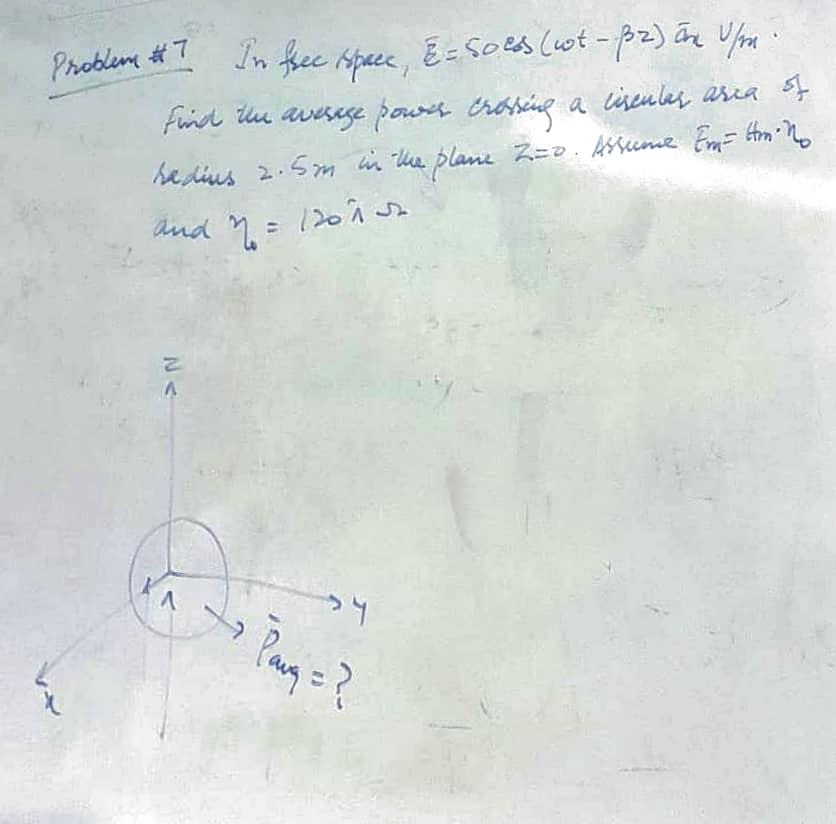 Problem #7 In free space, Ē = 50 cos (ωt - βz) āx V/m.
Find the average power crossing a circular area of
radius 2.5m in the plane Z=0. Assume Em = Hm·η₀
and η₀ = 120π Ω
z
y
x
P̄avg = ?